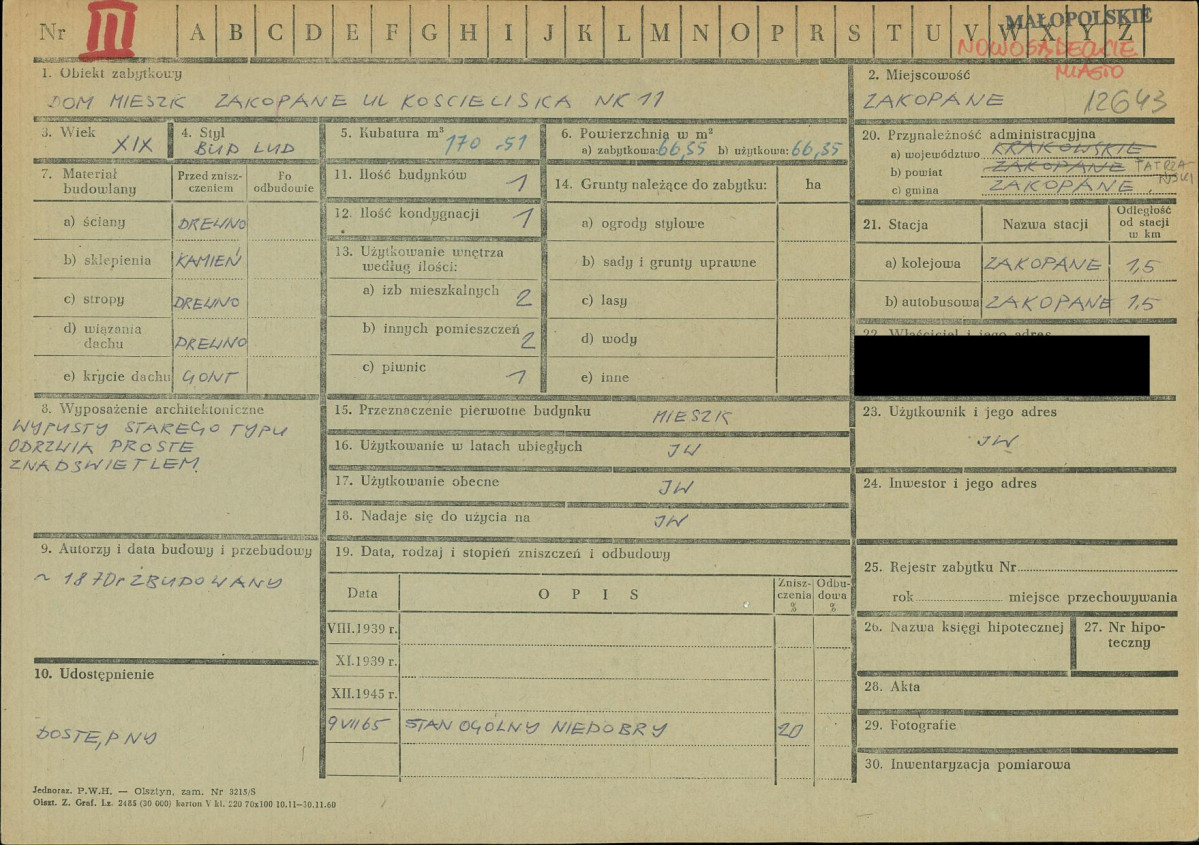 Nr III A B C D E F G H I J K L M N O P R S T U V W X Y Z
MAŁOPOLSKIE
NOWOSĄDECKIE
MIASTO
1. Obiekt zabytkowy
DOM MIESZK ZAKOPANE UL KOSCIELISKA NR 11
2. Miejscowość
ZAKOPANE 12643
3. Wiek
XIX
4. Styl
BUD LUD
5. Kubatura m³
170.51
6. Powierzchnia w m²
a) zabytkowa: 66,35 b) użytkowa: 66,35
20. Przynależność administracyjna
a) województwo KRAKOWSKIE
b) powiat ZAKOPANE TATRZAŃSKI
c) gmina ZAKOPANE
7. Materiał budowlany
Przed zniszczeniem
Po odbudowie
a) ściany DREWNO
b) sklepienia KAMIEŃ
c) stropy DREWNO
d) wiązania dachu DREWNO
e) krycie dachu GONT
11. Ilość budynków 1
12. Ilość kondygnacji 1
13. Użytkowanie wnętrza według ilości:
a) izb mieszkalnych 2
b) innych pomieszczeń 2
c) piwnic 1
14. Grunty należące do zabytku: ha
a) ogrody stylowe
b) sady i grunty uprawne
c) lasy
d) wody
e) inne
21. Stacja Nazwa stacji Odległość od stacji w km
a) kolejowa ZAKOPANE 1,5
b) autobusowa ZAKOPANE 1,5
22. Właściciel i jego adres
8. Wyposażenie architektoniczne
WYPUSTY STAREGO TYPU
ODRZWIA PROSTE
Z NADSWIETLEM
15. Przeznaczenie pierwotne budynku MIESZK
16. Użytkowanie w latach ubiegłych JW
17. Użytkowanie obecne JW
18. Nadaje się do użycia na JW
23. Użytkownik i jego adres
JW
24. Inwestor i jego adres
9. Autorzy i data budowy i przebudowy
~ 187Dr ZBUDOWANY
19. Data, rodzaj i stopień zniszczeń i odbudowy
Data OPIS Zniszczenia % Odbudowa %
VIII.1939 r.
XI.1939 r.
XII.1945 r.
9 VII 65 STAN OGÓLNY NIEDOBRY 20
25. Rejestr zabytku Nr
rok miejsce przechowywania
26. Nazwa księgi hipotecznej
27. Nr hipoteczny
28. Akta
29. Fotografie
30. Inwentaryzacja pomiarowa
10. Udostępnienie
DOSTĘPNY
Jednoraz. P.W.H. — Olsztyn, zam. Nr 3215/S
Olszt. Z. Graf. Lz. 2485 (30 000) karton V kl. 220 70x100 10.11—30.11.60